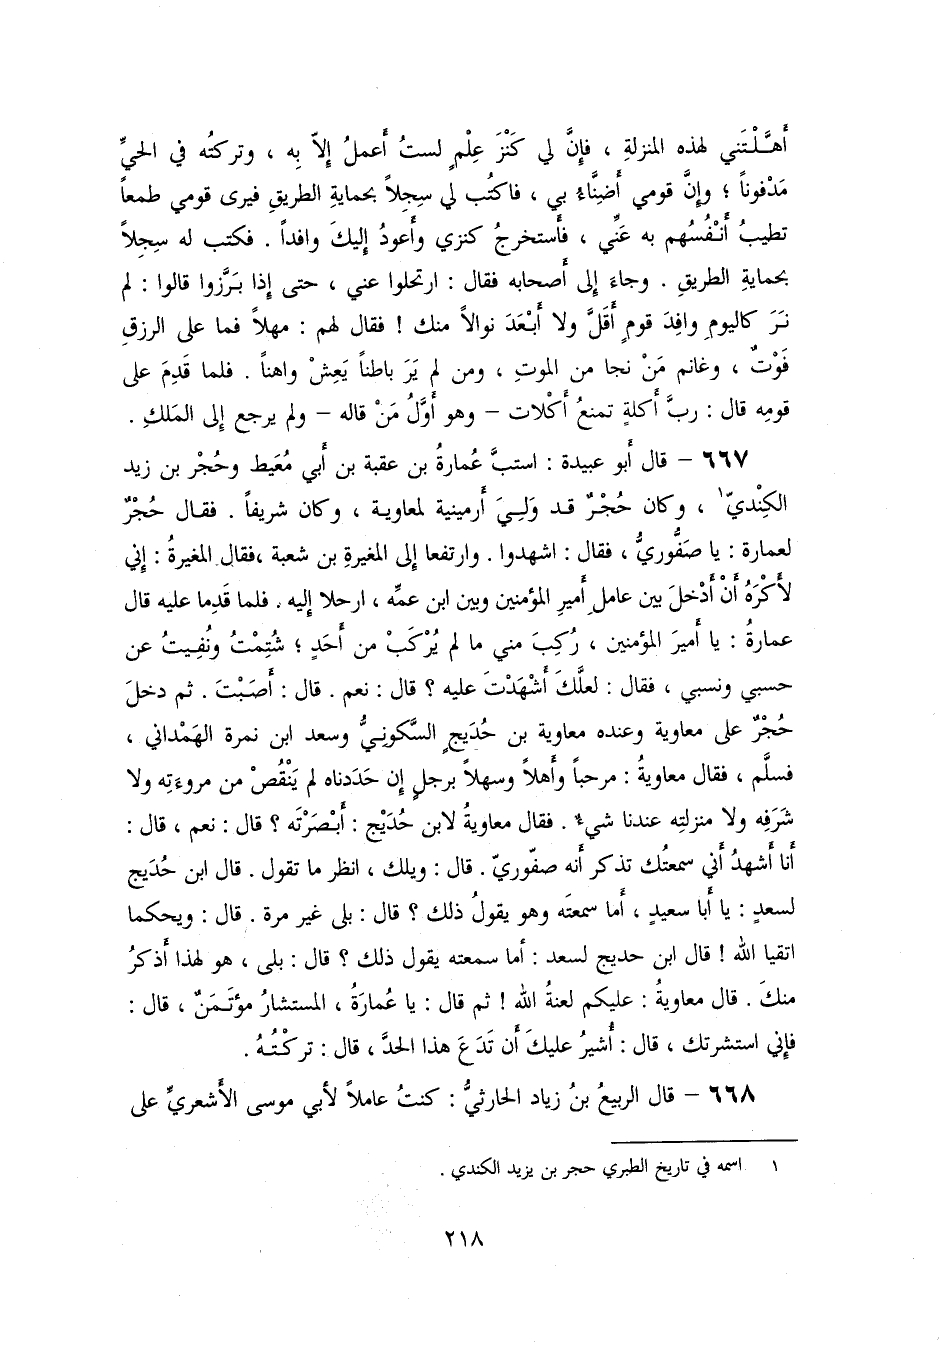 أَهَّلْتَني لهذه المنزلةِ ، فإنَّ لي كَنْزَ عِلْمٍ لستُ أَعملُ إلاّ بِه ، وتركتُه في الحيِّ
مَدْفوناً ؛ وإنَّ قومي أَضِنَّاءُ بي ، فاكتُب لي سِجِلاً بحمايةِ الطريقِ فيرى قومي طمعاً
تطيبُ أَنْفُسُهم به عَنِّي ، فأَستخرجُ كنزي وأَعودُ إليكَ وافداً . فكتب له سِجِلاً
بحمايةِ الطريقِ . وجاءَ إلى أَصحابه فقال : ارتحلوا عني ، حتى إذا بَرَّزوا قالوا : لم
نَرَ كاليومِ وافِدَ قومٍ أَقَلَّ ولا أَبْعَدَ نوالاً منك ! فقال لهم : مهلاً فما على الرزقِ
فَوْتٌ ، وغانم مَنْ نجا من الموتِ ، ومن لم يَرَ باطناً يَعِشْ واهناً . فلما قَدِمَ على
قومِه قال : ربَّ أَكلةٍ تمنعُ أَكْلات – وهو أَوَّلُ مَنْ قاله – ولم يرجع إلى المَلكِ .
٦٦٧ – قال أبو عبيدة : استبَّ عُمارةُ بن عقبة بن أَبي مُعَيط وحُجْر بن زيد
الكِنْديّ١ ، وكان حُجْرٌ قد وَلِيَ أَرمينية لمعاوية ، وكان شريفاً . فقال حُجْرٌ
لعمارة : يا صَفُّوريُّ ، فقال : اشهدوا . وارتفعا إلى المغيرةِ بن شعبة ،فقال المغيرةُ : إني
لأَكْرَهُ أَنْ أَدْخلَ بين عاملِ أَميرِ المؤمنين وبين ابن عمِّه ، ارحلا إليه . فلما قَدِما عليه قال
عمارةُ : يا أَميرَ المؤمنين ، رُكِبَ مني ما لم يُرْكَبْ من أَحَدٍ ؛ شُتِمْتُ ونُفِيتُ عن
حسبي ونسبي ، فقال : لعلَّكَ أَشْهَدْتَ عليه ؟ قال : نعم . قال : أَصَبْتَ . ثم دخلَ
حُجْرٌ على معاوية وعنده معاوية بن حُدَيجٍ السَّكونِيُّ وسعد ابن نمرة الهَمْداني ،
فسلَّم ، فقال معاويةُ : مرحباً وأَهلاً وسهلاً برجلٍ إن حَدَدناه لم يَنْقُصْ من مروءَتِه ولا
شَرَفِه ولا منزلتِه عندنا شيء . فقال معاويةُ لابن حُدَيْج : أَبْصَرْتَه ؟ قال : نعم ، قال :
أنا أَشهدُ أَني سمعتُك تذكر أَنه صفّوريّ . قال : ويلك ، انظر ما تقول . قال ابن حُدَيج
لسعدٍ : يا أَبا سعيدٍ ، أَما سمعتَه وهو يقولُ ذلك ؟ قال : بلى غير مرة . قال : ويحكما
اتقيا الله ! قال ابن حديج لسعد : أَما سمعته يقول ذلك ؟ قال : بلى ، هو لهذا أَذكرُ
منكَ . قال معاويةُ : عليكم لعنةُ الله ! ثم قال : يا عُمارَةُ ، المستشارُ مؤتَمَنٌ ، قال :
فإني استشرتك ، قال : أُشيرُ عليكَ أَن تَدَعَ هذا الحدَّ ، قال : تركْتُهُ .
٦٦٨ – قال الربيعُ بنُ زياد الحارثيُّ : كنتُ عاملاً لأَبي موسى الأَشعريِّ على
١ اسمه في تاريخ الطبري حجر بن يزيد الكندي .
٢١٨